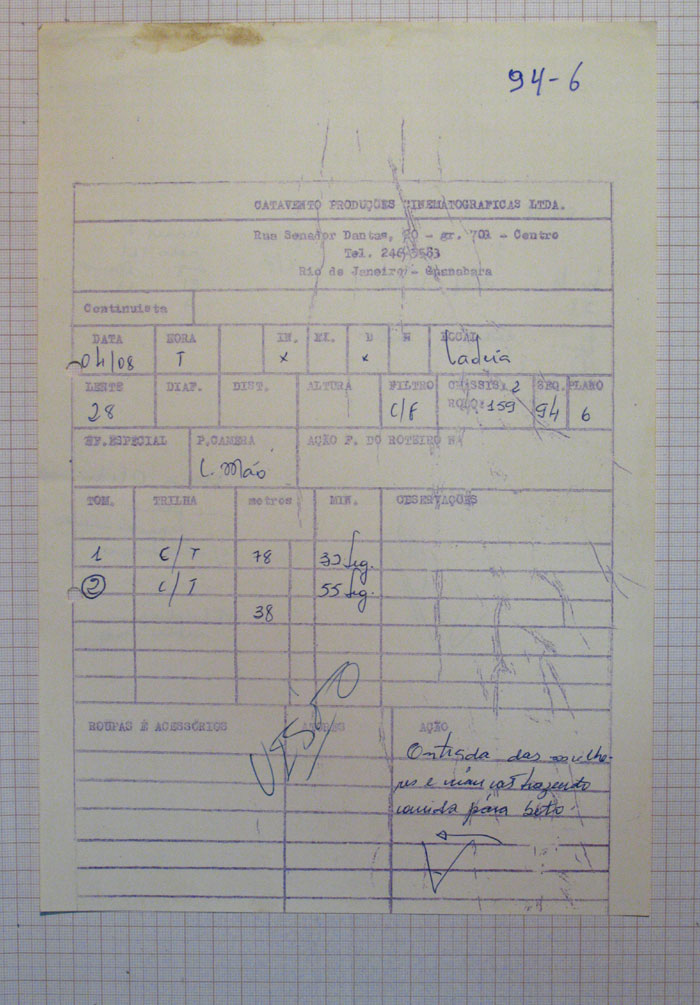 94-6
CATAVENTO PRODUÇÕES CINEMATOGRAFICAS LTDA.
Rua Senador Dantas, 20 - gr. 701 - Centro
Tel. 246-5563
Rio de Janeiro - Guanabara
Continuista
DATA HORA IN. EX. D N LOCAL
04/08 T x x
LENTE DIAF. DIST. ALTURA FILTRO CHASSIS: 2 SEQ. PLANO
28 C/F ROLO: 159 94 6
EF.ESPECIAL P.CAMERA AÇÃO P. DO ROTEIRO
C. Mão
TOM. TRILHA metros MIN. OBSERVAÇÕES
1 C/T 78 32 seg.
2 C/T 55 seg.
38
ROUPAS E ACESSÓRIOS ATORES AÇÃO
Entrada das mulhe-
res e crianças trazendo
comida para beto.
VERSO